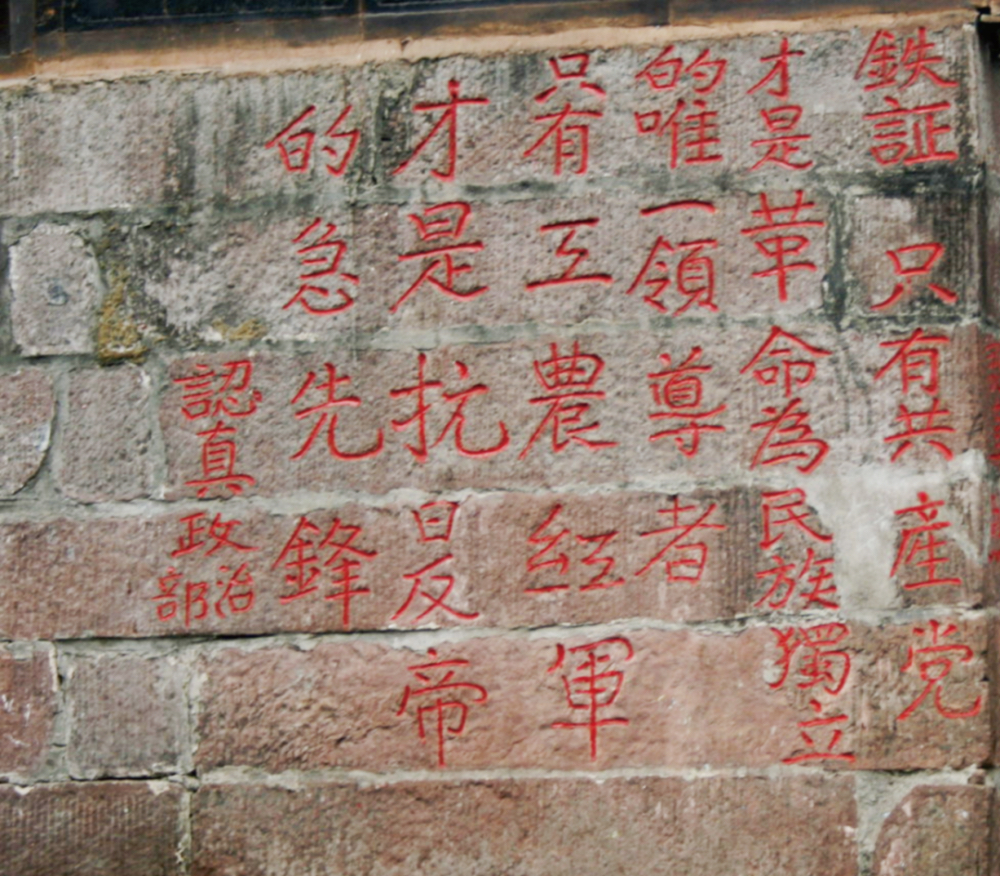 鉄証 只有共產党
才是革命為民族獨立
的唯一領導者
只有工農紅軍
才是抗日反帝
的急先鋒
認真政治部